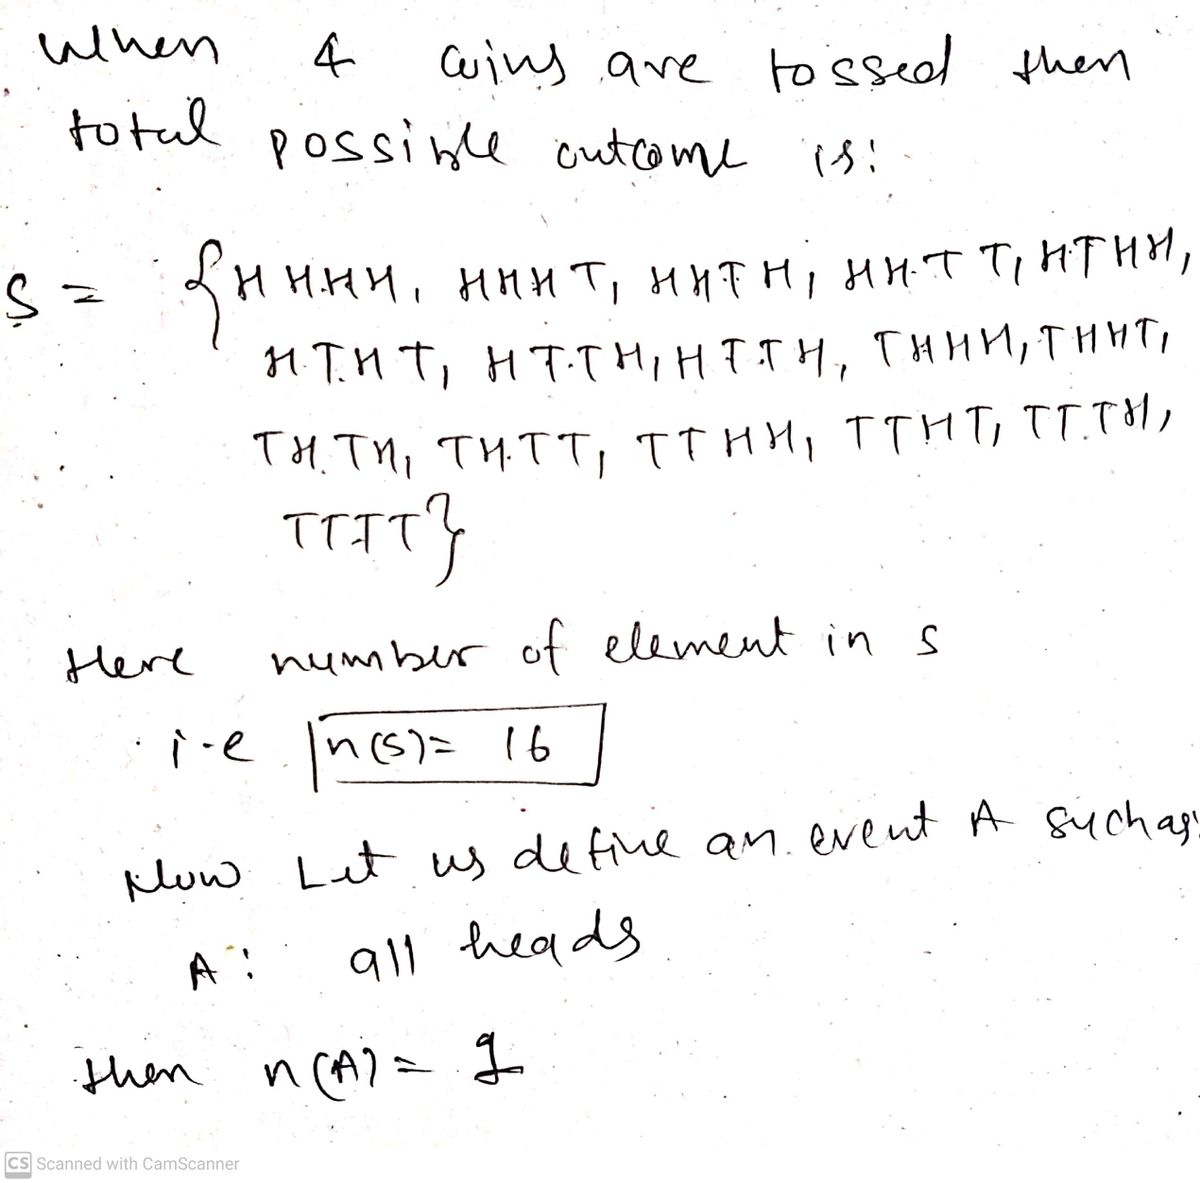 When 4 coins are tossed then
total possible outcome is:
S = {HHHH, HHHT, HHTH, HHTT, HTHH,
HTHT, HTTH, HTTH, THHH, THHT,
THTH, THTT, TTHH, TTHT, TTTH,
TTTT}
Here number of element in s
i-e n(S) = 16
Now Let us define an event A such as:
A: all heads
then n(A) = 1
CS Scanned with CamScanner